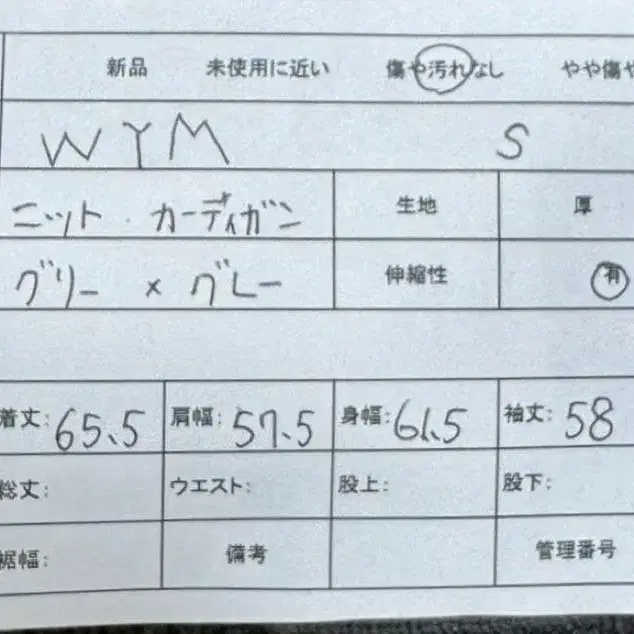 新品 未使用に近い 傷や汚れなし やや傷や
WYM S
ニット カーディガン 生地 厚
グリー × グレー 伸縮性 有
着丈: 65.5 肩幅: 57.5 身幅: 61.5 袖丈: 58
総丈: ウエスト: 股上: 股下:
裾幅: 備考 管理番号